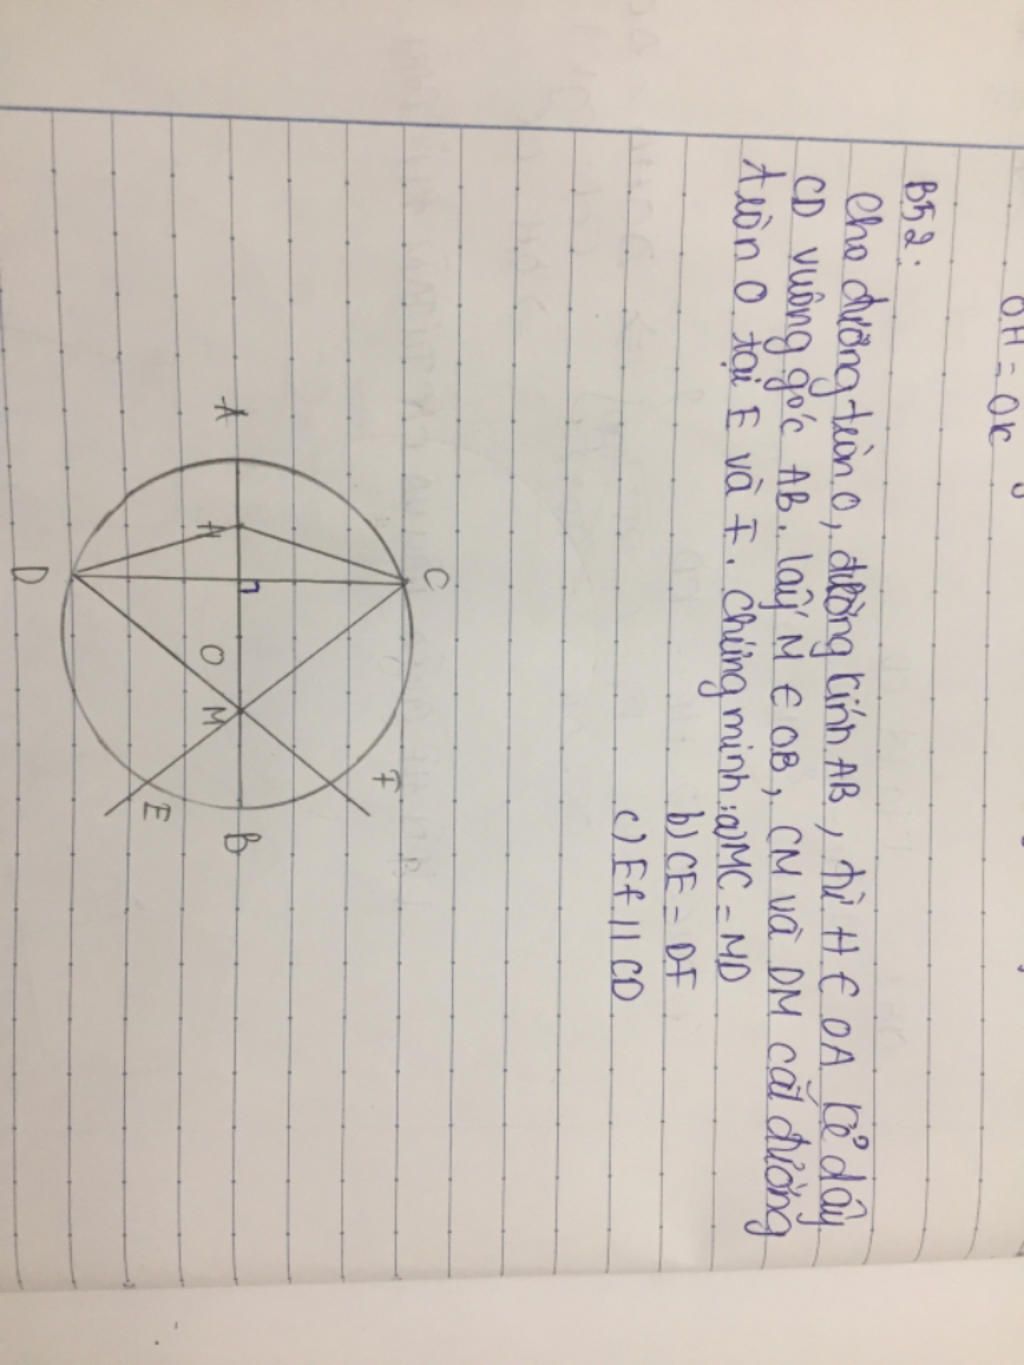 OH = OK
B52.
Cho đường tròn O, đường kính AB, từ H ∈ OA kẻ dây
CD vuông góc AB. lấy M ∈ OB, CM và DM cắt đường
tròn O tại E và F. Chứng minh: a) MC = MD
b) CE = DF
c) EF // CD
C
F
A
H
O
M
B
D
E